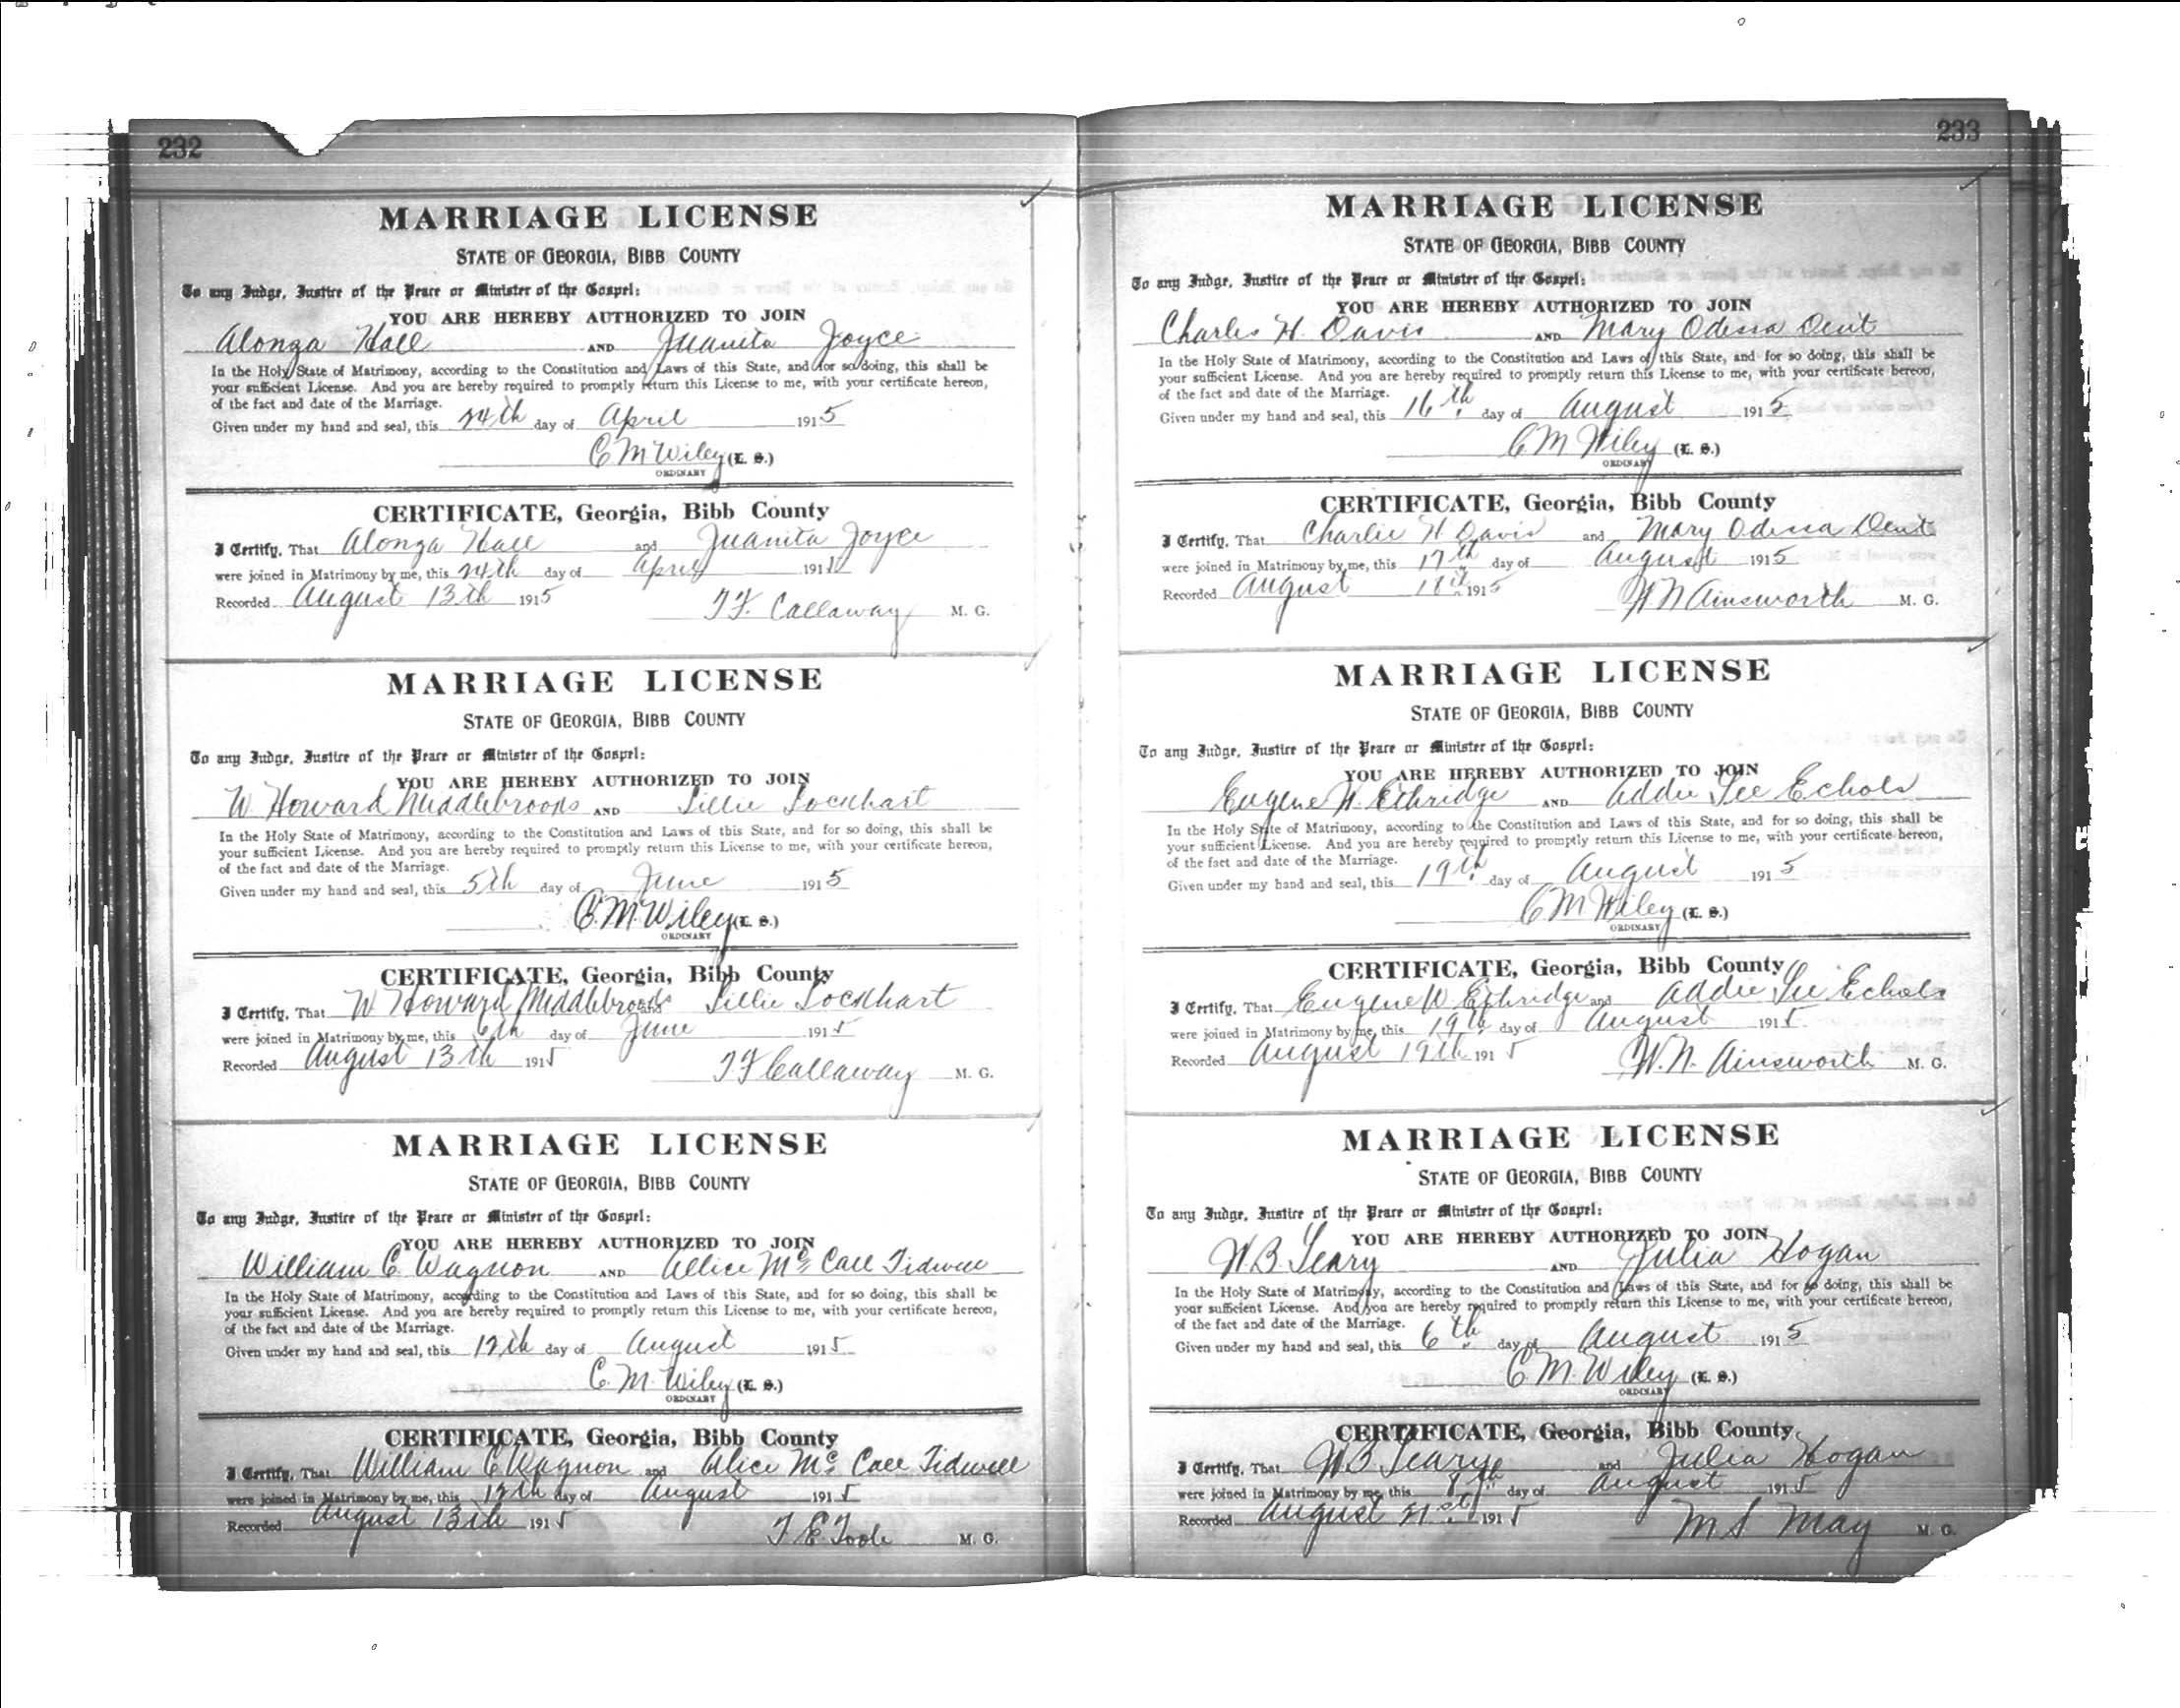 232
MARRIAGE LICENSE
STATE OF GEORGIA, BIBB COUNTY
To any Judge, Justice of the Peace or Minister of the Gospel:
YOU ARE HEREBY AUTHORIZED TO JOIN
Alonza Hall AND Juanita Joyce
In the Holy State of Matrimony, according to the Constitution and Laws of this State, and for so doing, this shall be
your sufficient License. And you are hereby required to promptly return this License to me, with your certificate hereon,
of the fact and date of the Marriage.
Given under my hand and seal, this 24th day of April 1915
C M Wiley (L. S.)
ORDINARY
CERTIFICATE, Georgia, Bibb County
I Certify, That Alonza Hall and Juanita Joyce
were joined in Matrimony by me, this 24th day of April 1915
Recorded August 13th 1915 T F. Callaway M. G.
MARRIAGE LICENSE
STATE OF GEORGIA, BIBB COUNTY
To any Judge, Justice of the Peace or Minister of the Gospel:
YOU ARE HEREBY AUTHORIZED TO JOIN
W. Howard Middlebrooks AND Lillie Lockhart
In the Holy State of Matrimony, according to the Constitution and Laws of this State, and for so doing, this shall be
your sufficient License. And you are hereby required to promptly return this License to me, with your certificate hereon,
of the fact and date of the Marriage.
Given under my hand and seal, this 5th day of June 1915
C. M. Wiley (L. S.)
ORDINARY
CERTIFICATE, Georgia, Bibb County
I Certify, That W Howard Middlebrooks and Lillie Lockhart
were joined in Matrimony by me, this 6th day of June 1915
Recorded August 13th 1915 T F Callaway M. G.
MARRIAGE LICENSE
STATE OF GEORGIA, BIBB COUNTY
To any Judge, Justice of the Peace or Minister of the Gospel:
YOU ARE HEREBY AUTHORIZED TO JOIN
William C. Wagnon AND Allice Mc Call Tidwell
In the Holy State of Matrimony, according to the Constitution and Laws of this State, and for so doing, this shall be
your sufficient License. And you are hereby required to promptly return this License to me, with your certificate hereon,
of the fact and date of the Marriage.
Given under my hand and seal, this 12th day of August 1915
C. M. Wiley (L. S.)
ORDINARY
CERTIFICATE, Georgia, Bibb County
I Certify, That William C Wagnon and Alice Mc Call Tidwell
were joined in Matrimony by me, this 12th day of August 1915
Recorded August 13th 1915 T. E. Toole M. G.
233
MARRIAGE LICENSE
STATE OF GEORGIA, BIBB COUNTY
To any Judge, Justice of the Peace or Minister of the Gospel:
YOU ARE HEREBY AUTHORIZED TO JOIN
Charles H. Davis AND Mary Odessa Dent
In the Holy State of Matrimony, according to the Constitution and Laws of this State, and for so doing, this shall be
your sufficient License. And you are hereby required to promptly return this License to me, with your certificate hereon,
of the fact and date of the Marriage.
Given under my hand and seal, this 16th. day of August 1915
C M Wiley (L. S.)
ORDINARY
CERTIFICATE, Georgia, Bibb County
I Certify, That Charlie H Davis and Mary Odessa Dent
were joined in Matrimony by me, this 17th day of August 1915
Recorded August 18th. 1915 W N Ainsworth M. G.
MARRIAGE LICENSE
STATE OF GEORGIA, BIBB COUNTY
To any Judge, Justice of the Peace or Minister of the Gospel:
YOU ARE HEREBY AUTHORIZED TO JOIN
Eugene W. Ethridge AND Addie Lee Echols
In the Holy State of Matrimony, according to the Constitution and Laws of this State, and for so doing, this shall be
your sufficient License. And you are hereby required to promptly return this License to me, with your certificate hereon,
of the fact and date of the Marriage.
Given under my hand and seal, this 19th. day of August 1915
C M Wiley (L. S.)
ORDINARY
CERTIFICATE, Georgia, Bibb County
I Certify, That Eugene W Ethridge and Addie Lee Echols
were joined in Matrimony by me, this 19th. day of August 1915
Recorded August 19th. 1915 W. N. Ainsworth M. G.
MARRIAGE LICENSE
STATE OF GEORGIA, BIBB COUNTY
To any Judge, Justice of the Peace or Minister of the Gospel:
YOU ARE HEREBY AUTHORIZED TO JOIN
W. B. Seary AND Julia Hogan
In the Holy State of Matrimony, according to the Constitution and Laws of this State, and for so doing, this shall be
your sufficient License. And you are hereby required to promptly return this License to me, with your certificate hereon,
of the fact and date of the Marriage.
Given under my hand and seal, this 6th. day of August 1915
C. M. Wiley (L. S.)
ORDINARY
CERTIFICATE, Georgia, Bibb County
I Certify, That W B Seary and Julia Hogan
were joined in Matrimony by me, this 8th day of August 1915
Recorded August 21st. 1915 M S May M. G.